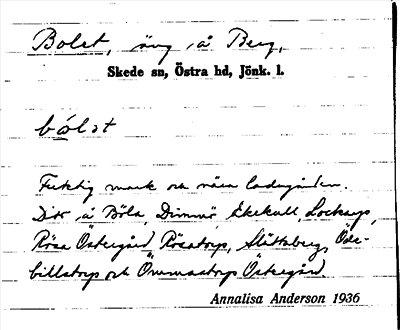 Bolet, äng å Berg,
Skede sn, Östra hd, Jönk. l.
bólet
Fuktig mark och nära ladugården.
Do å Böla, Ekekull,
Rösa Östergård, Rösatorp, Slättaberg, Öde-
billstorp och Ömmastorp Östergård.
Annalisa Anderson 1936